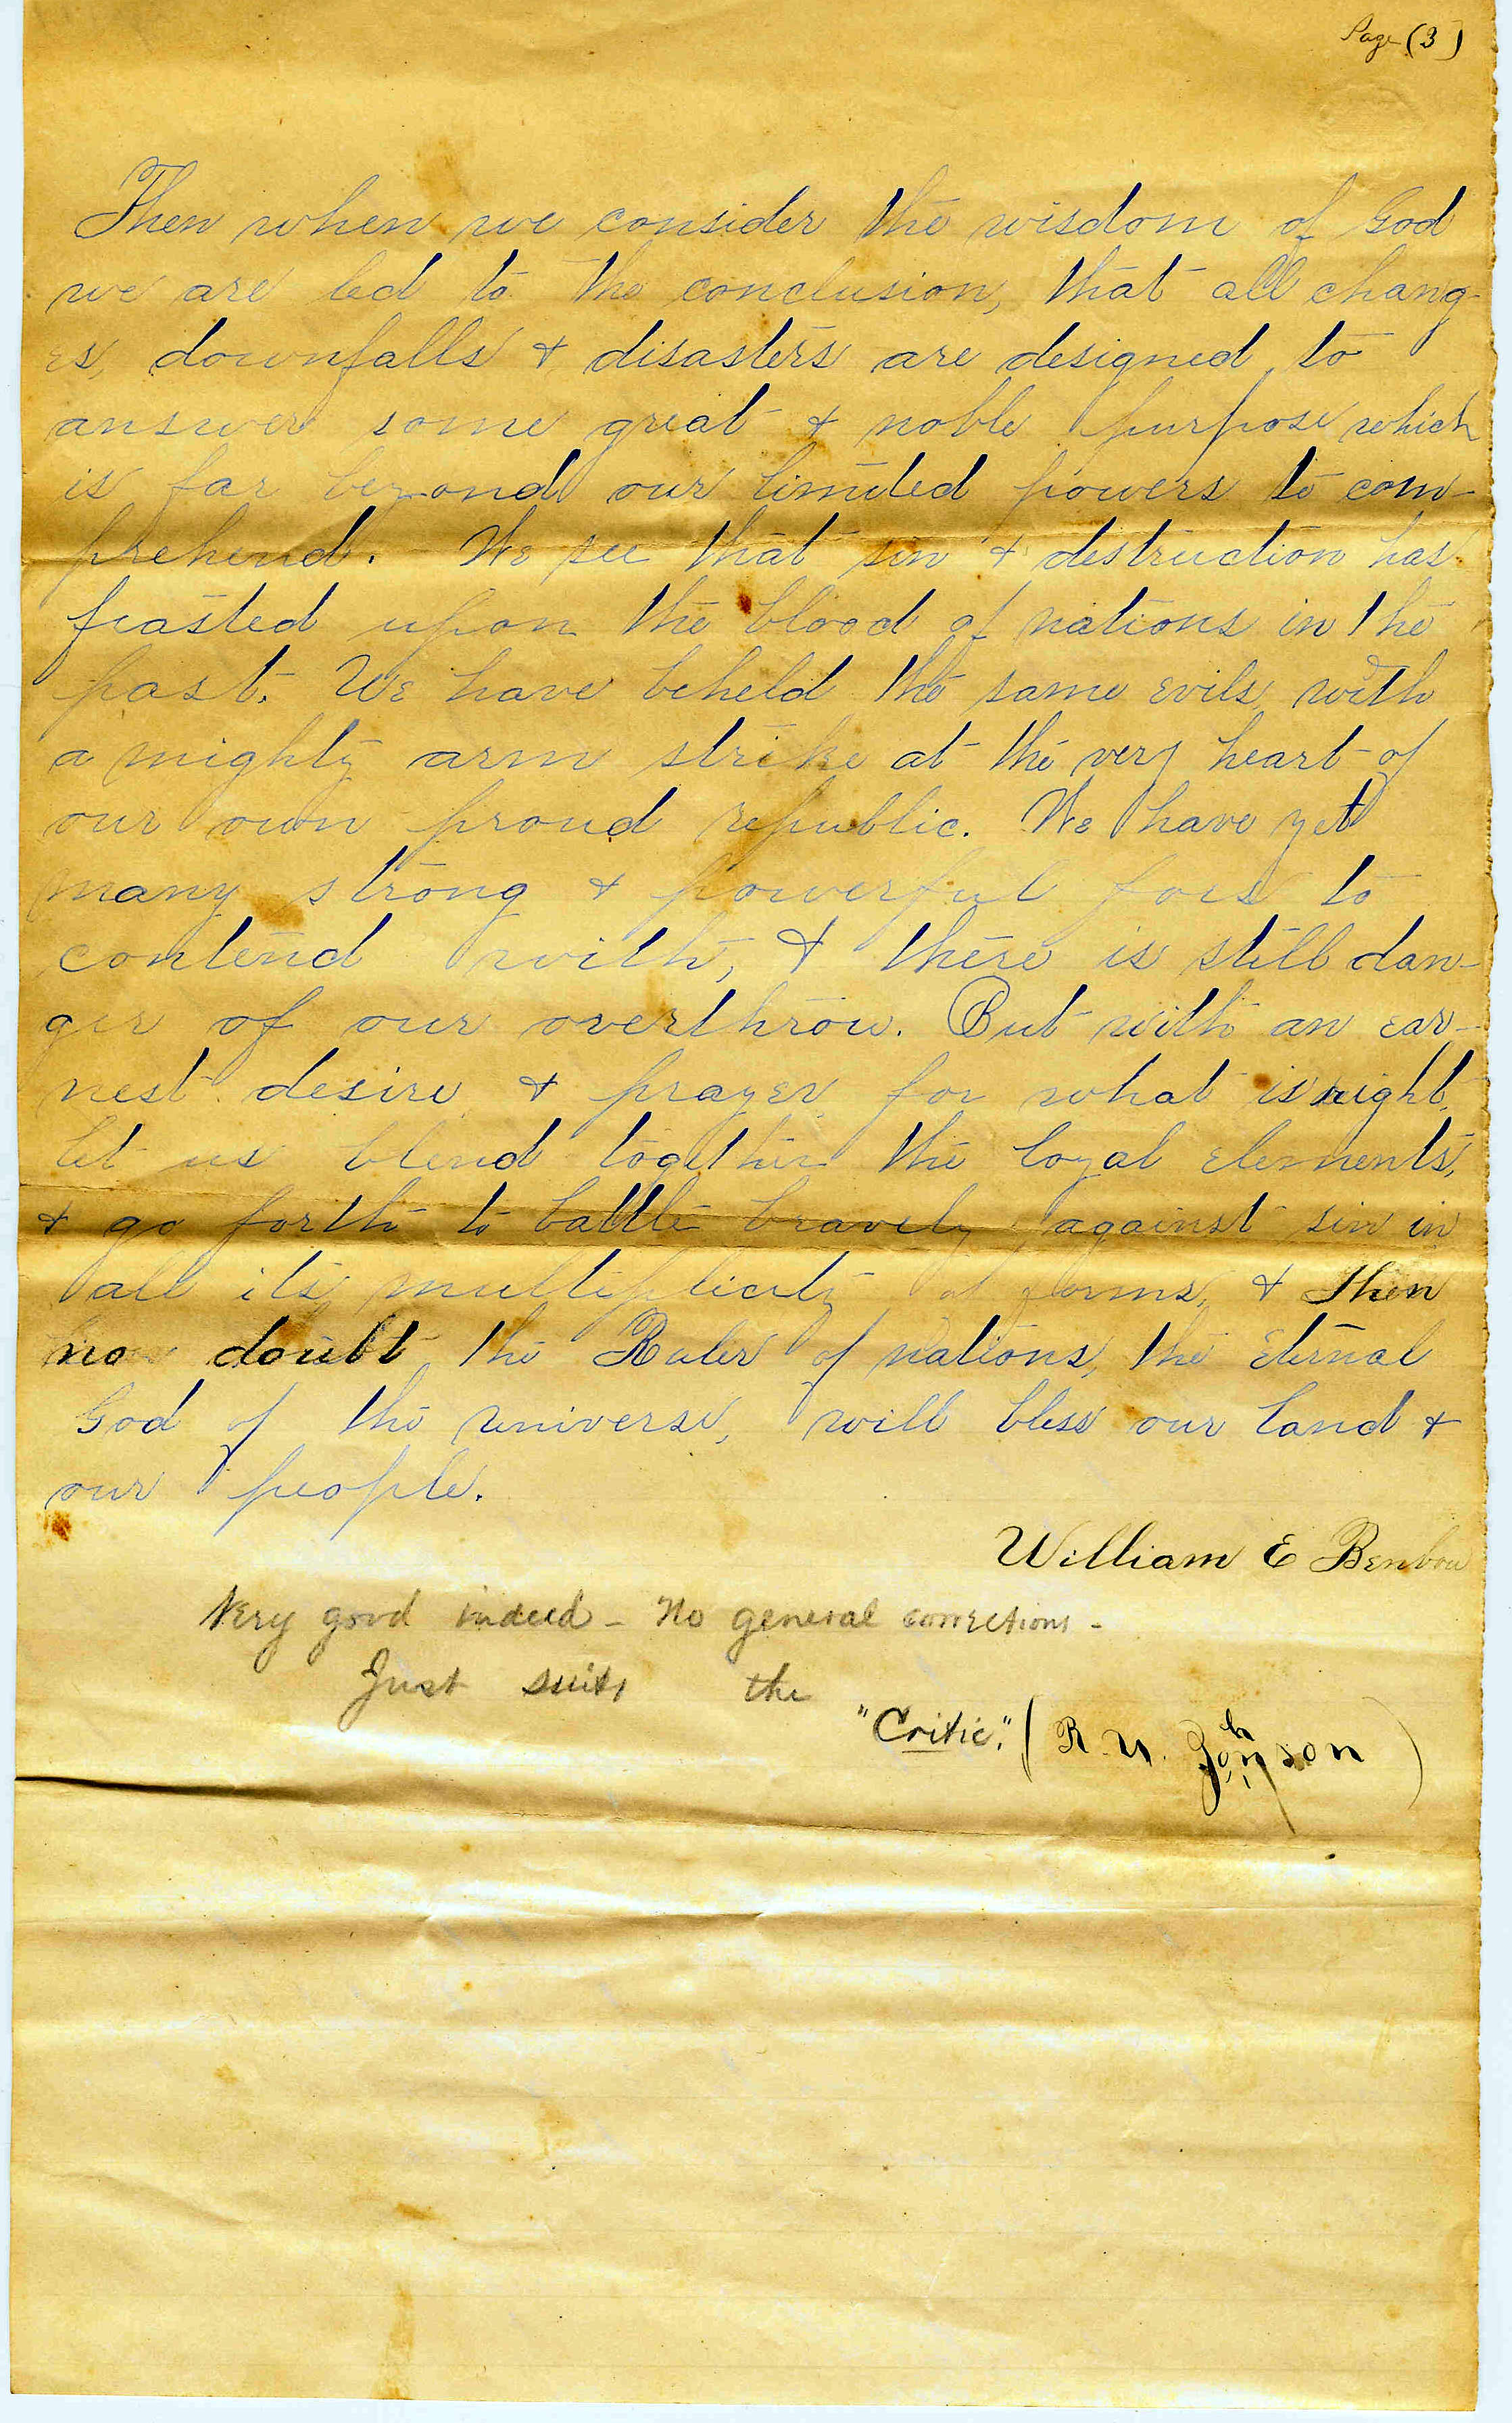 Page (3)
Then when we consider the wisdom of God
we are led to the conclusion, that all chang-
es, downfalls & disasters are designed to
answer some great & noble purpose which
is far beyond our limited powers to com-
prehend. We see that sin & destruction has
feasted upon the blood of nations in the
past. We have beheld the same evils, with
a mighty arm strike at the very heart of
our own proud republic. We have yet
many strong & powerful foes to
contend with, & there is still dan-
ger of our overthrow. But with an ear-
nest desire & prayer for what is right,
let us blend together the loyal elements,
& go forth to battle bravely against sin in
all its multiplicity of forms, & then
no doubt the Ruler of nations, the Eternal
God of the universe, will bless our land &
our people.
William E Benbow
Very good indeed - No general corrections -
Just suits the
"Critic." (R. U. Johnson)